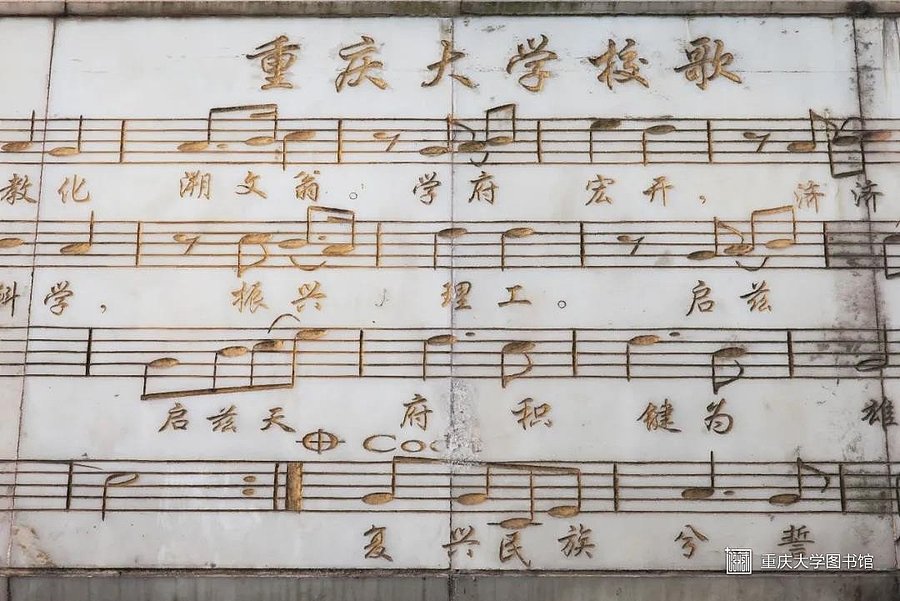 重庆大学校歌
教化 溯文翁。学府 宏开，济济
科学， 振兴 理工。 启兹
启兹天 府 积 健为 雄
Coda
复 兴民族 兮 誓
重庆大学图书馆